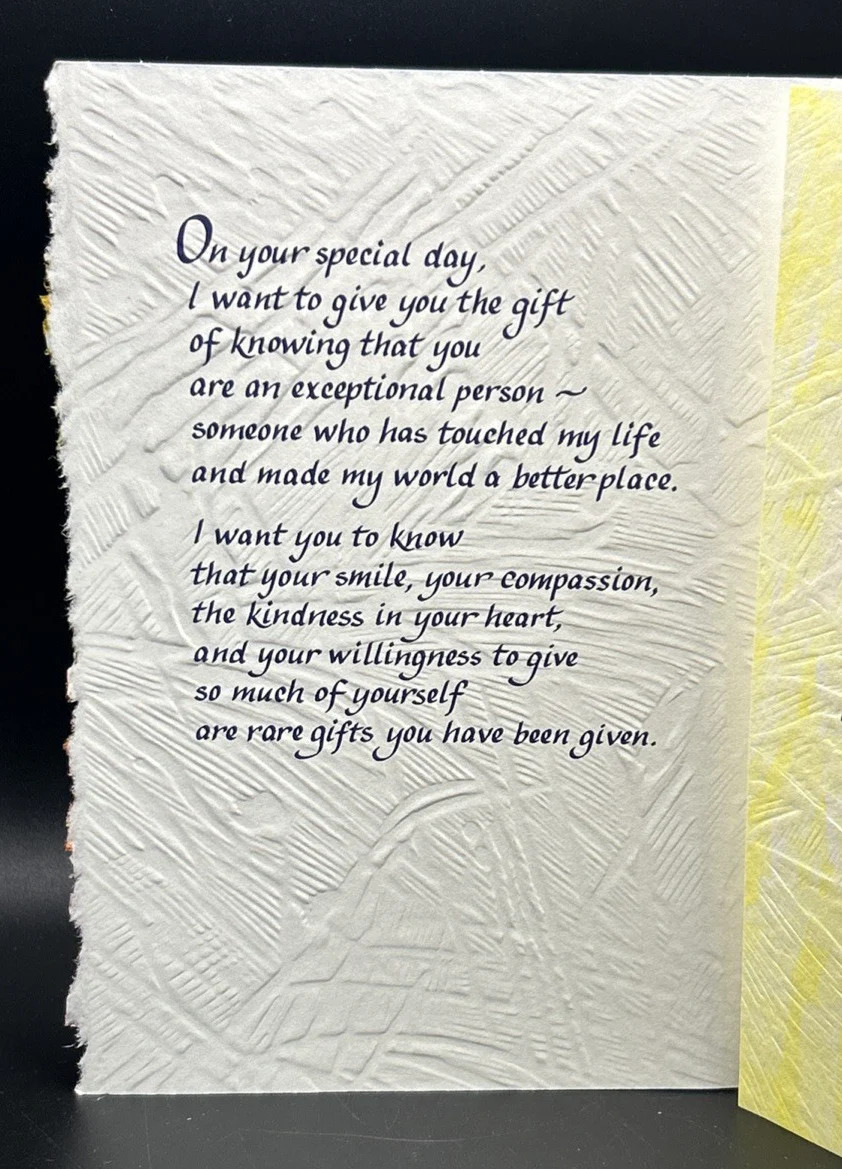 On your special day,
I want to give you the gift
of knowing that you
are an exceptional person ~
someone who has touched my life
and made my world a better place.
I want you to know
that your smile, your compassion,
the kindness in your heart,
and your willingness to give
so much of yourself
are rare gifts you have been given.